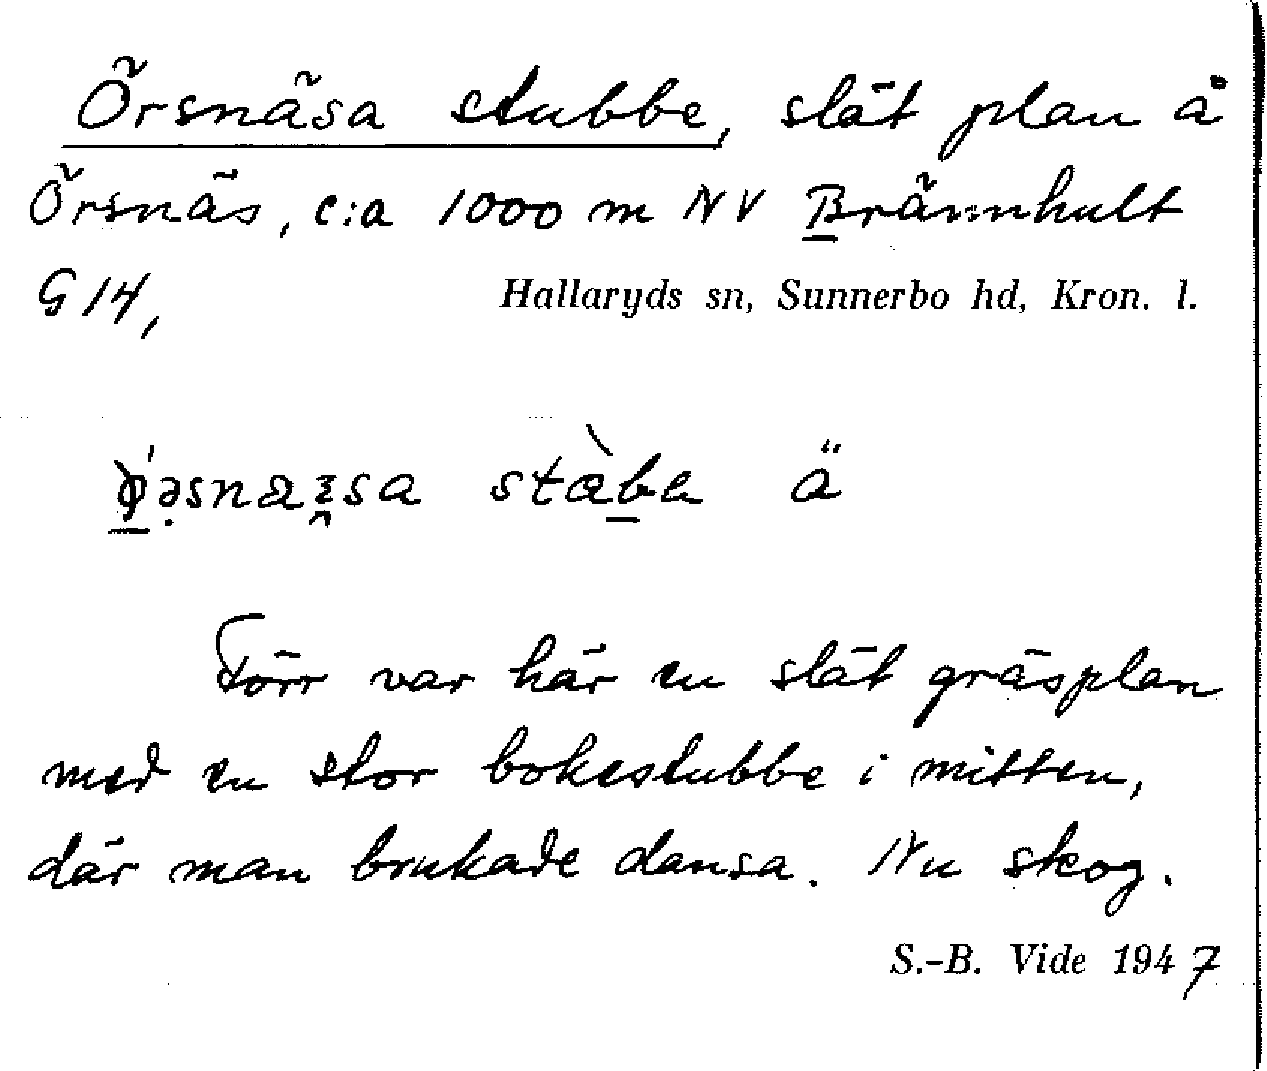 Örsnäsa stubbe, slät plan å
Örsnäs, c:a 1000 m NV Brännhult
G 14,
Hallaryds sn, Sunnerbo hd, Kron. l.
ä
Förr var här en slät gräsplan
med en stor bokestubbe i mitten,
där man brukade dansa. Nu skog.
S.-B. Vide 1947